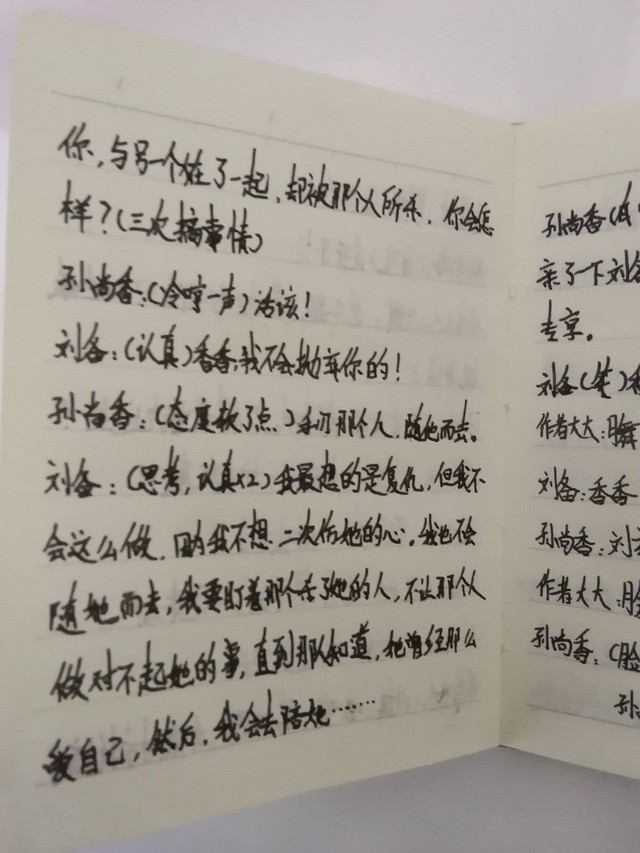 你，与另一个在了一起，却被那个人所杀，你会怎
样？（三次搞事情）
孙尚香：（冷哼一声）活该！
刘备：（认真）香香，我不会抛弃你的！
孙尚香：（态度软了点）手刃那个人，随他而去。
刘备：（思考，认真x2）我最想的是复仇，但我不
会这么做，因为我不想二次伤她的心。我也不会
随她而去，我要盯着那个杀了她的人，不让那个人
做对不起她的事，直到那人知道，她曾经那么
爱自己，然后，我会去陪她……
孙尚香（
亲了下刘备
专享。
刘备（笑）
作者大大：
刘备：香香
孙尚香：刘
作者大大：脸
孙尚香：（脸
孙